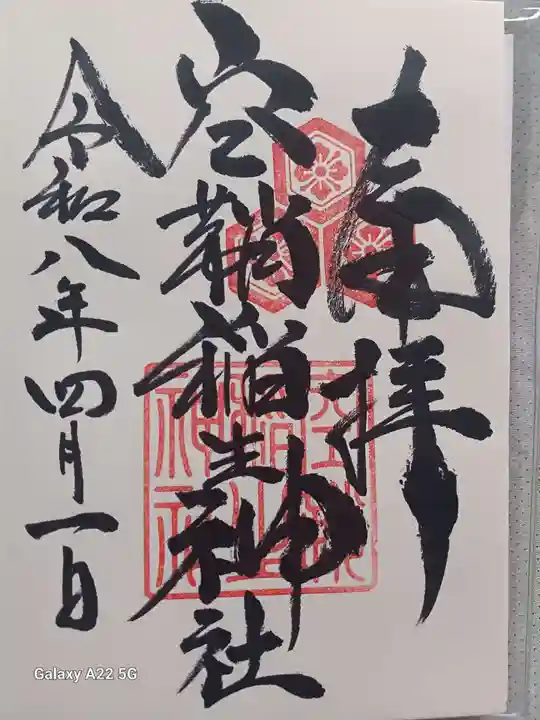 奉拝
空鞘稲生神社
令和八年四月一日
空鞘稲生神社
Galaxy A22 5G